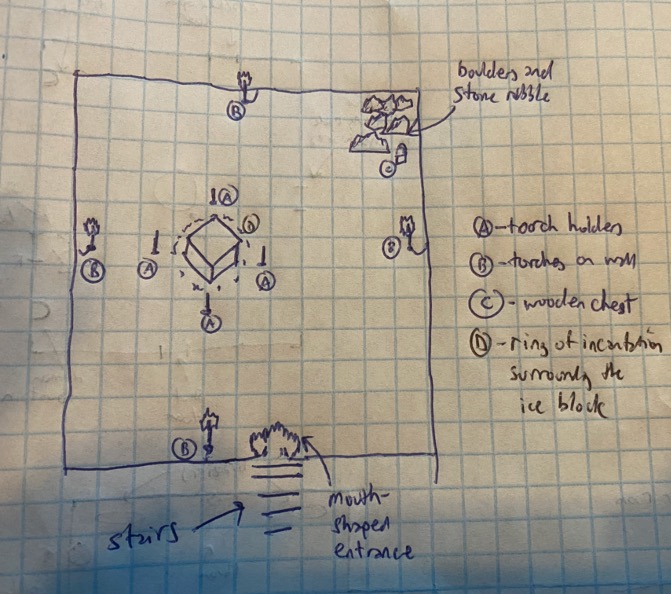 boulders and
stone rubble
B
C
A
D
B
A
A
B
A
B
A - torch holders
B - torches on wall
C - wooden chest
D - ring of incantation
surroundg the
ice block
stairs
mouth-
shaped
entrance